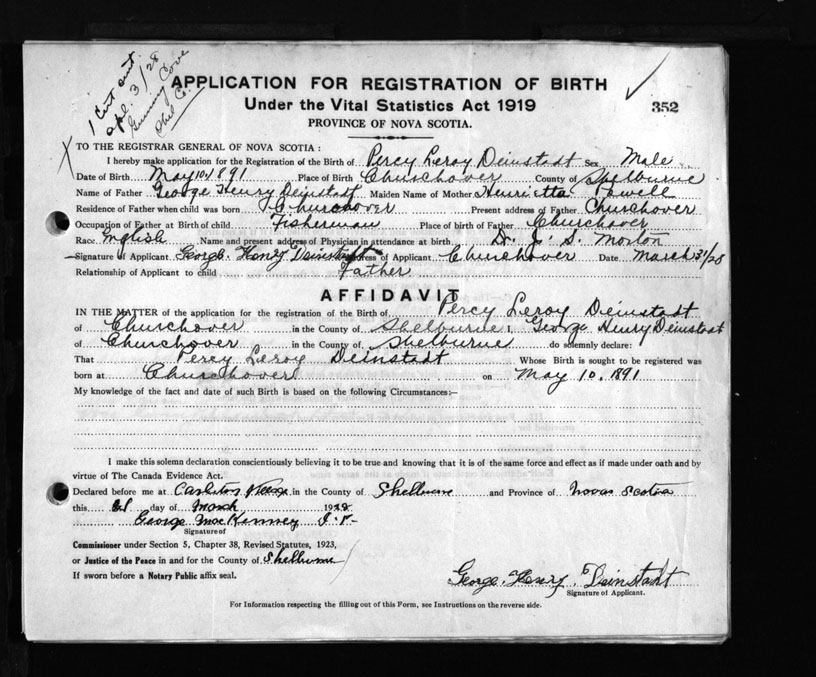 1 Cert sent
Apl. 3/28
Gunning Cove
Shel Co.
APPLICATION FOR REGISTRATION OF BIRTH
Under the Vital Statistics Act 1919
352
PROVINCE OF NOVA SCOTIA.
TO THE REGISTRAR GENERAL OF NOVA SCOTIA :
I hereby make application for the Registration of the Birth of Percy Leroy Deinstadt Sex Male
Date of Birth May 10, 1891 Place of Birth Churchover County of Shelburne
Name of Father George Henry Deinstadt Maiden Name of Mother Henrietta Powell
Residence of Father when child was born Churchover Present address of Father Churchover
Occupation of Father at Birth of child Fisherman Place of birth of Father Churchover
Race English Name and present address of Physician in attendance at birth Dr. S. Morton
Signature of Applicant George Henry Deinstadt Address of Applicant Churchover Date March 31/28
Relationship of Applicant to child Father
AFFIDAVIT
IN THE MATTER of the application for the registration of the Birth of Percy Leroy Deinstadt
of Churchover in the County of Shelburne I, George Henry Deinstadt
of Churchover in the County of Shelburne do solemnly declare:
That Percy Leroy Deinstadt Whose Birth is sought to be registered was
born at Churchover on May 10, 1891
My knowledge of the fact and date of such Birth is based on the following Circumstances:—
I make this solemn declaration conscientiously believing it to be true and knowing that it is of the same force and effect as if made under oath and by
virtue of The Canada Evidence Act.
Declared before me at Carleton Village in the County of Shelburne and Province of Nova Scotia
this 31 day of March 1928
George MacKenney J.P.
Signature of
Commissioner under Section 5, Chapter 38, Revised Statutes, 1923,
or Justice of the Peace in and for the County of Shelburne
If sworn before a Notary Public affix seal.
George Henry Deinstadt
Signature of Applicant.
For Information respecting the filling out of this Form, see Instructions on the reverse side.